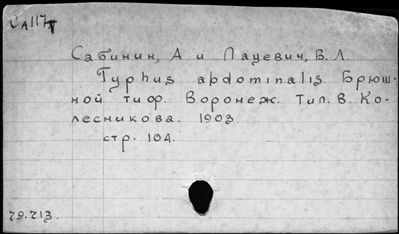 СА117т
Сабинин, А и Пацевич, В. Л.
Typhus abdominalis. Брюш-
ной тиф. Воронеж. Тип. В. Ко-
лесникова. 1903.
стр. 104.
79.713.